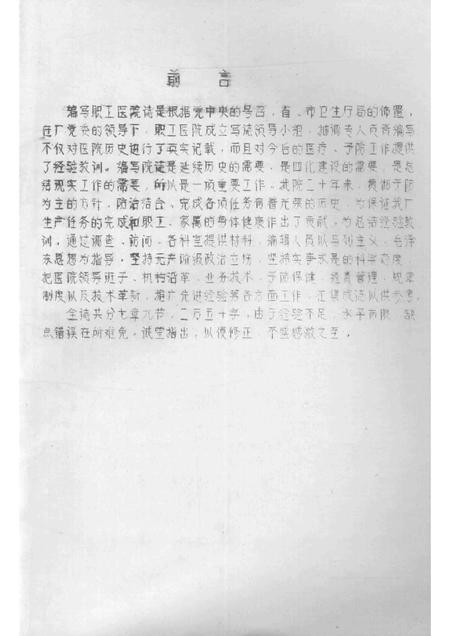 前言
编写职工医院誌是根据党中央的号召，省、市卫生厅局的佈置，
在厂党委的领导下，职工医院成立写誌领导小组，抽调专人负责编写
不仅对医院历史进行了真实记载，而且对今后的医疗、予防工作提供
了经验教训。编写院誌是延续历史的需要，是四化建设的需要，是总
结现实工作的需要，所以是一项重要工作。我院三十年来，贯彻予防
为主的方针，防治结合、完成各项任务有着光荣的历史，为保证我厂
生产任务的完成和职工、家属的身体健康作出了贡献，为总结经验教
训，通过调查、访问、各科室提供材料，编辑人员以马列主义、毛泽
东思想为指导，坚持无产阶级政治立场，坚持实事求是的科学态度，
把医院领导班子、机构沿革、业务技术、予防保健、经营管理、规章
制度以及技术革新，推广先进经验等各方面工作，汇集成誌以供参考。
全誌共分七章九节，二万五千字，由于经验不足，水平有限，缺
点错误在所难免，诚望指出，以便修正，不胜感激之至。